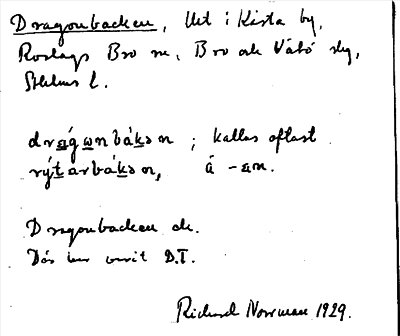 Dragonbacken, Utt i Kista by,
Roslags Bro sn, Bro och Vätö slg,
Sthlms l.
dragonbákən ; kallas oftast
rýtarbákən, å -an.
Dragonbacken ds.
Där har varit D.T.
Richard Norrman 1929.